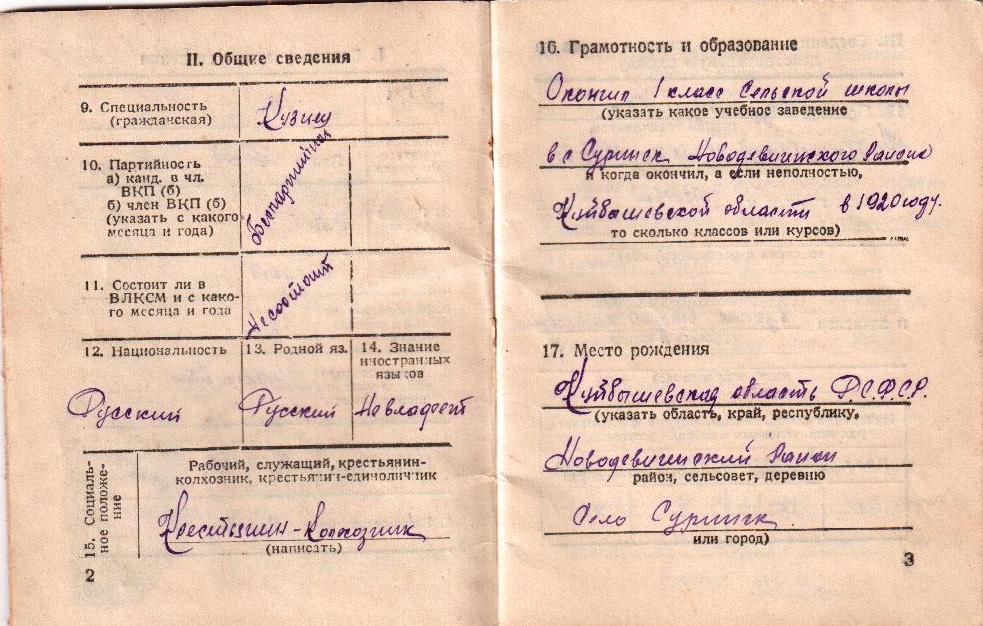 II. Общие сведения
9. Специальность
(гражданская)
Кузнец
10. Партийность
а) канд. в чл.
ВКП (б)
б) член ВКП (б)
(указать с какого
месяца и года)
беспартийная
11. Состоит ли в
ВЛКСМ и с како-
го месяца и года
Несостоит
12. Национальность
13. Родной яз.
14. Знание
иностранных
языков
Русский
Русский
Невладеет
15. Социаль-
ное положе-
ние
Рабочий, служащий, крестьянин-
колхозник, крестьянин-единоличник
Крестьянин-Колхозник
(написать)
2
16. Грамотность и образование
Окончил 1 класс Сельской школы
(указать какое учебное заведение
в с Суринск Новодевиченского Района
и когда окончил, а если неполностью,
Куйбышевской области в 1920 году.
то сколько классов или курсов)
17. Место рождения
Куйбышевская область Р.С.Ф.С.Р.
(указать область, край, республику,
Новодевиченский Район
район, сельсовет, деревню
Село Суринск
или город)
3